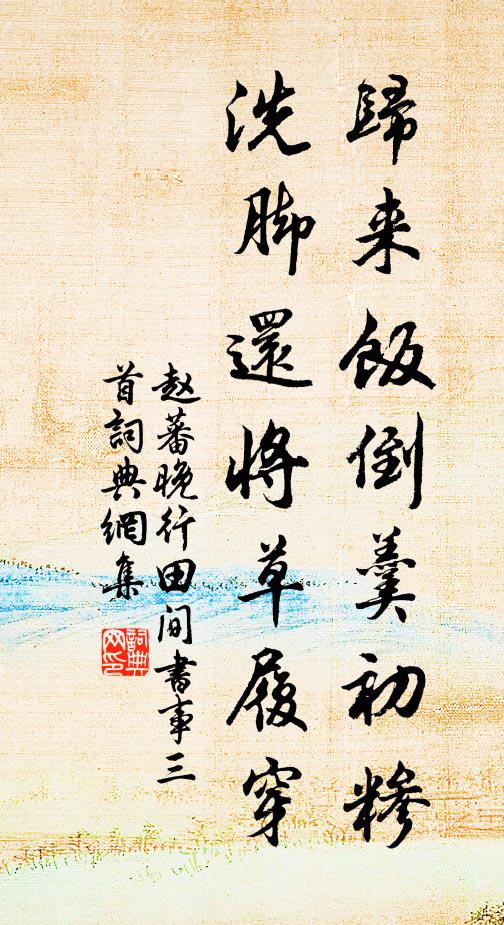 歸来飯倒羹初糝
洗脚還將草履穿
赵蕃晚行田间書事三
首詞典網集
詞典網印